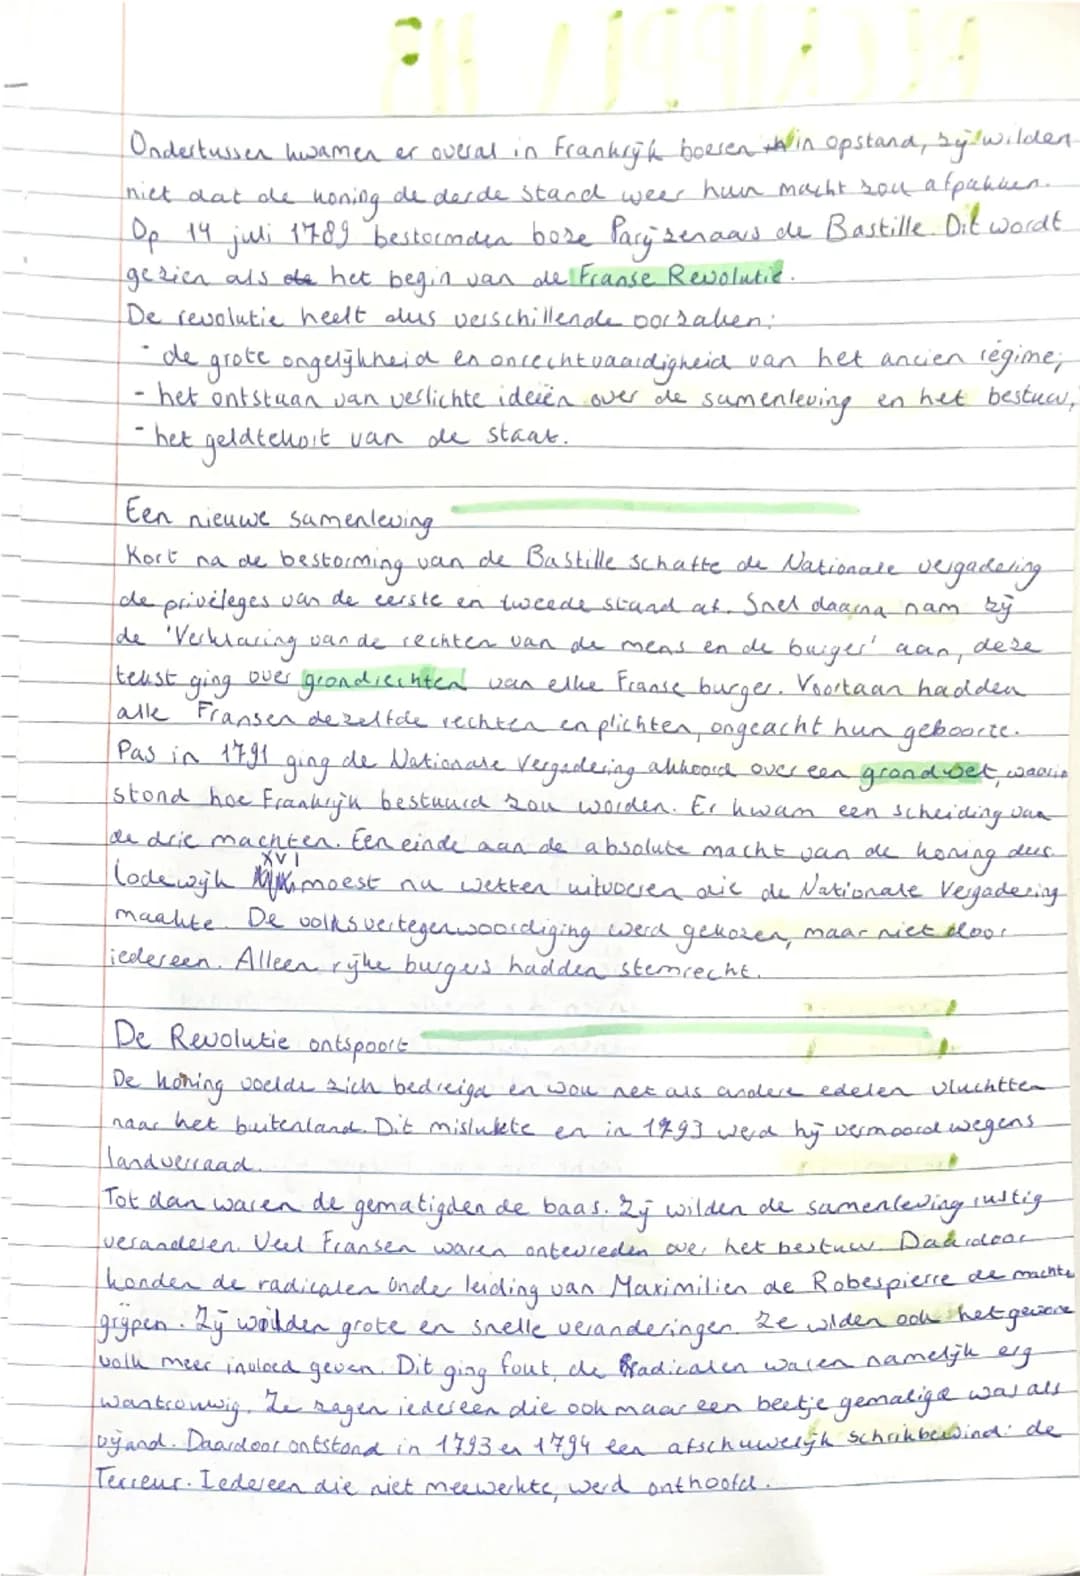 Ondertussen kwamen er overal in Frankrijk boeren in opstand, zij wilden
niet dat de koning de derde stand weer hun macht zou afpakken.
Op 14 juli 1789 bestormden boze Parijzenaars de Bastille. Dit wordt
gezien als de het begin van de Franse Revolutie.
De revolutie heeft dus verschillende oorzaken:
- de grote ongelijkheid en onrechtvaardigheid van het ancien régime;
- het ontstaan van verlichte ideeën over de samenleving en het bestuur,
- het geldtekort van de staat.
Een nieuwe samenleving
Kort na de bestorming van de Bastille schafte de Nationale vergadering
de privéleges van de eerste en tweede stand af. Snel daarna nam zij
de 'Verklaring van de rechten van de mens en de burger' aan, deze
tekst ging over grondrechten van elke Franse burger. Voortaan hadden
alle Fransen dezelfde rechten en plichten, ongeacht hun geboorte.
Pas in 1791 ging de Nationale Vergadering akkoord over een grondwet, waarin
stond hoe Frankrijk bestuurd zou worden. Er kwam een scheiding van
de drie machten. Een einde aan de absolute macht van de koning dus.
Lodewijk XVI moest nu wetten uitvoeren die de Nationale Vergadering
maakte. De volksvertegenwoordiging werd gekozen, maar niet door
iedereen. Alleen rijke burgers hadden stemrecht.
De Revolutie ontspoort
De koning voelde zich bedreigd en wou net als andere edelen vluchtten
naar het buitenland. Dit mislukte en in 1793 werd hij vermoord wegens
landverraad.
Tot dan waren de gematigden de baas. Zij wilden de samenleving rustig
veranderen. Veel Fransen waren ontevreden over het bestuur. Daardoor
konden de radicalen onder leiding van Maximilien de Robespierre de macht
grijpen. Zij wilden grote en snelle veranderingen. Ze wilden ook het gewone
volk meer invloed geven. Dit ging fout, de Radicalen waren namelijk erg
wantrouwig. Ze zagen iedereen die ook maar een beetje gematigd was als
vijand. Daardoor ontstond in 1793 en 1794 een afschuwelijk schrikbewind: de
Terreur. Iedereen die niet meewerkte, werd onthoofd.